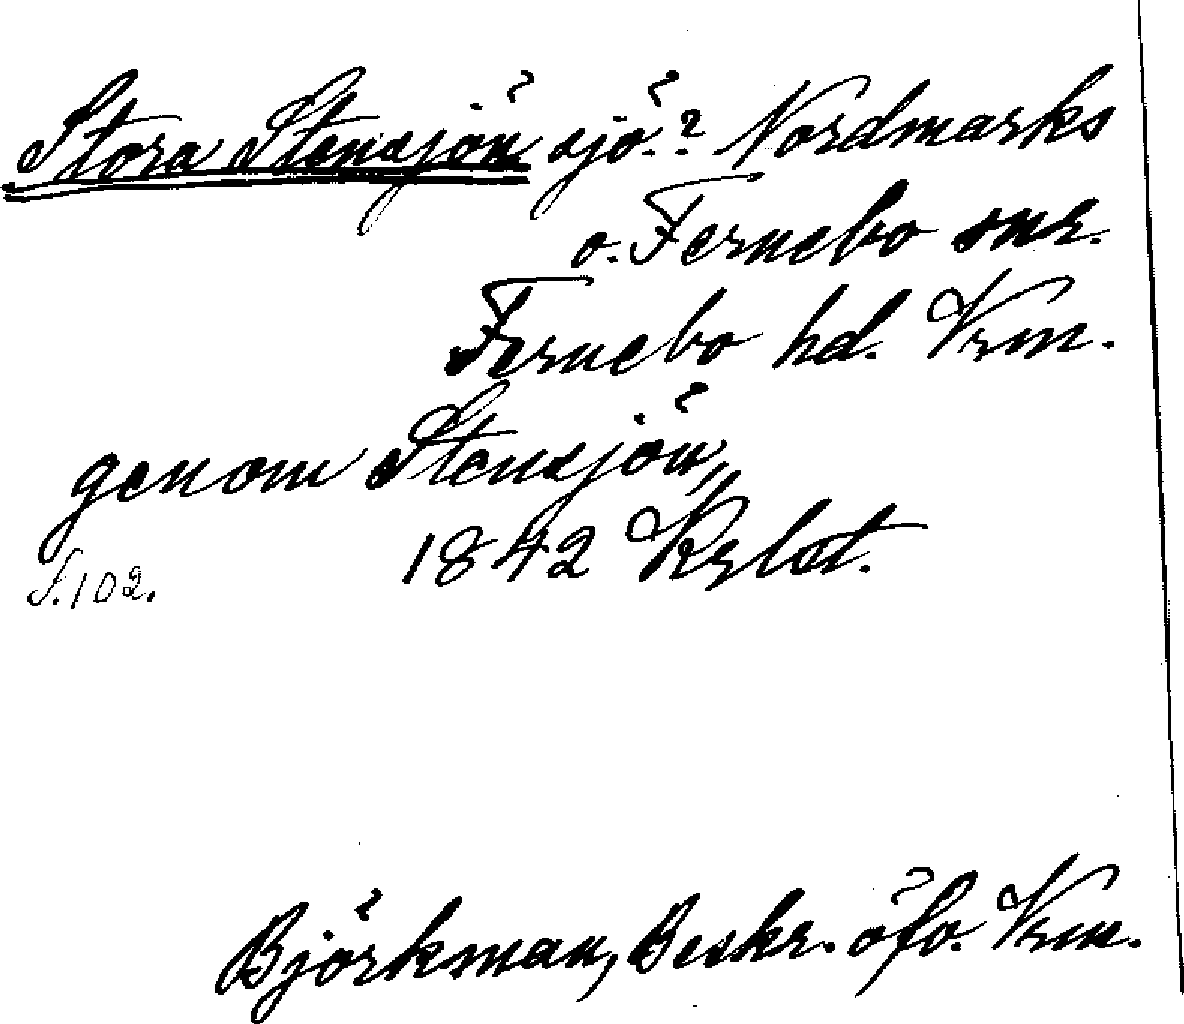 Stora Stensjön sjö.? Nordmarks
o. Fernebo snr.
Fernebo hd. Vrm.
genom Stensjön,,
1842 Krlat.
S. 102.
Björkman, Beskr. öfv. Vrm.